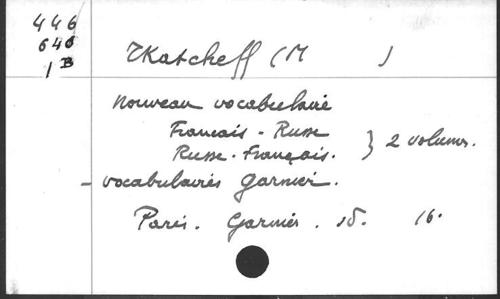 446
646
1 B
Tkatcheff (M )
Nouveau vocabulaire
Francais - Russe
Russe - Français. } 2 volumes.
- vocabulaires Garnier.
Paris. Garnier. sd. 16.